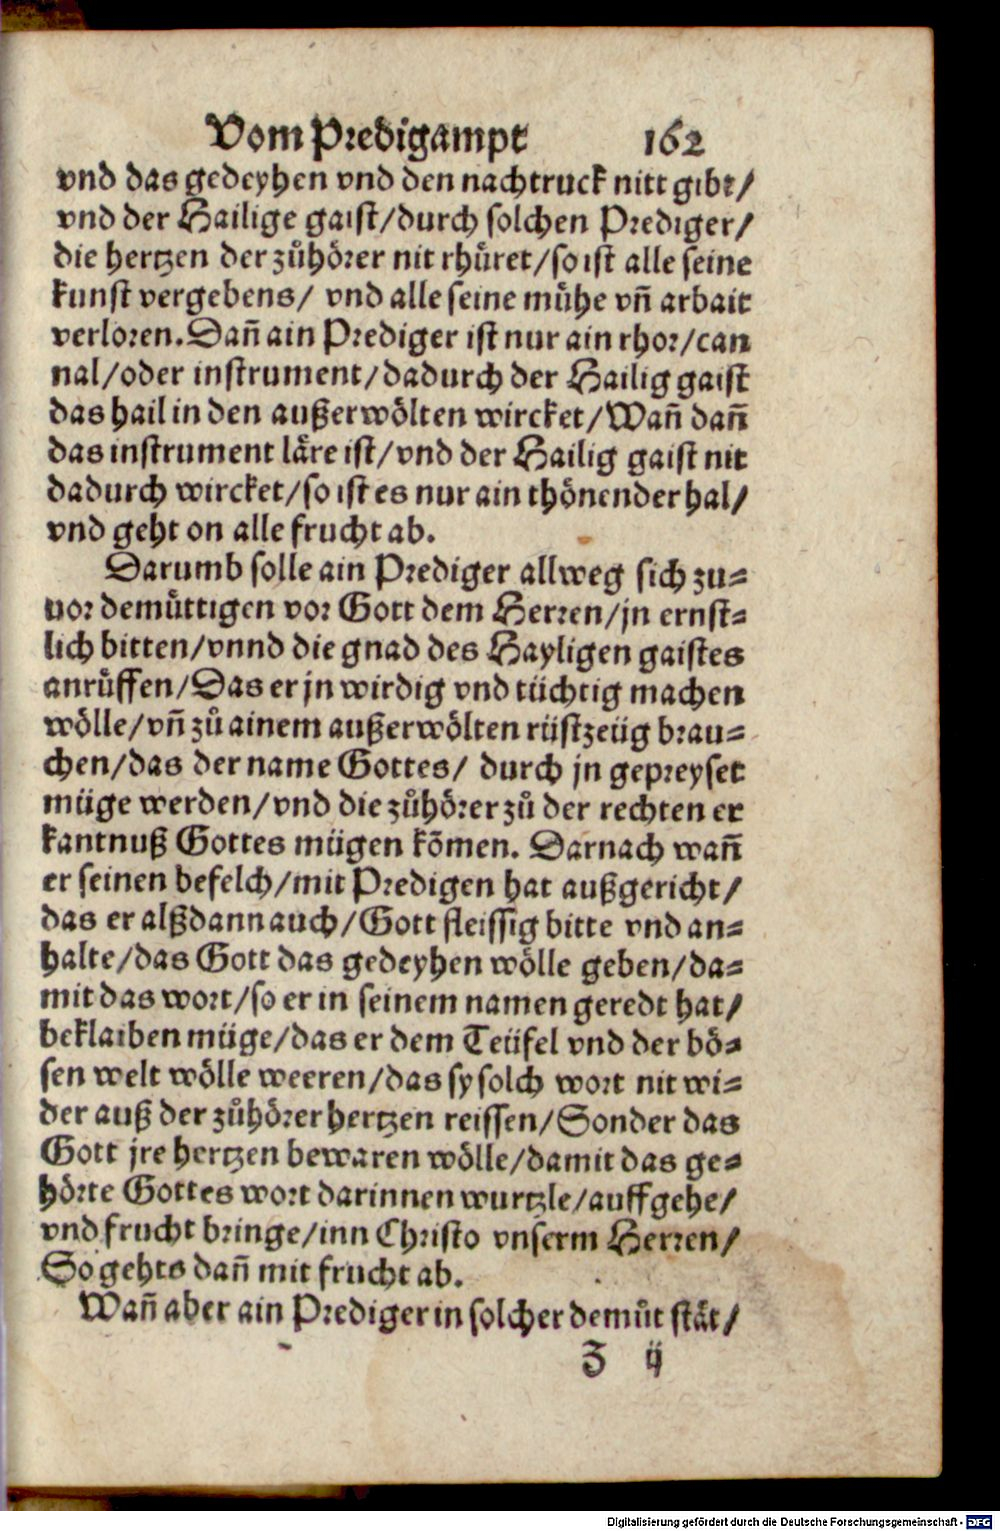 Vom Predigampt 162
vnd das gedeyhen vnd den nachtruck nitt gibt/
vnd der Hailige gaist/durch solchen Prediger/
die hertzen der zůhörer nit rhüret/so ist alle seine
kunst vergebens/ vnd alle seine mühe vñ arbait
verloren. Dañ ain Prediger ist nur ain rhor/can
nal/oder instrument/dadurch der Hailig gaist
das hail in den außerwölten wircket/Wañ dañ
das instrument läre ist/vnd der Hailig gaist nit
dadurch wircket/so ist es nur ain thönender hal/
vnd geht on alle frucht ab.
Darumb solle ain Prediger allweg sich zu-
uor demüttigen vor Gott dem Herren/jn ernst-
lich bitten/vnnd die gnad des Hayligen gaistes
anrüffen/Das er jn wirdig vnd tüchtig machen
wölle/vñ zů ainem außerwölten rüstzeüg brau-
chen/das der name Gottes/ durch jn gepreyset
müge werden/vnd die zůhörer zů der rechten er
kantnuß Gottes mügen kõmen. Darnach wañ
er seinen befelch/mit Predigen hat außgericht/
das er alßdann auch/Gott fleissig bitte vnd an-
halte/das Gott das gedeyhen wölle geben/da-
mit das wort/so er in seinem namen geredt hat/
beklaiben müge/das er dem Teüfel vnd der bö-
sen welt wölle weeren/das sy solch wort nit wi-
der auß der zůhörer hertzen reissen/Sonder das
Gott jre hertzen bewaren wölle/damit das ge-
hörte Gottes wort darinnen wurtzle/auffgehe/
vnd frucht bringe/inn Christo vnserm Herren/
So gehts dañ mit frucht ab.
Wañ aber ain Prediger in solcher demůt stät/
Z ij
Digitalisierung gefördert durch die Deutsche Forschungsgemeinschaft - DFG